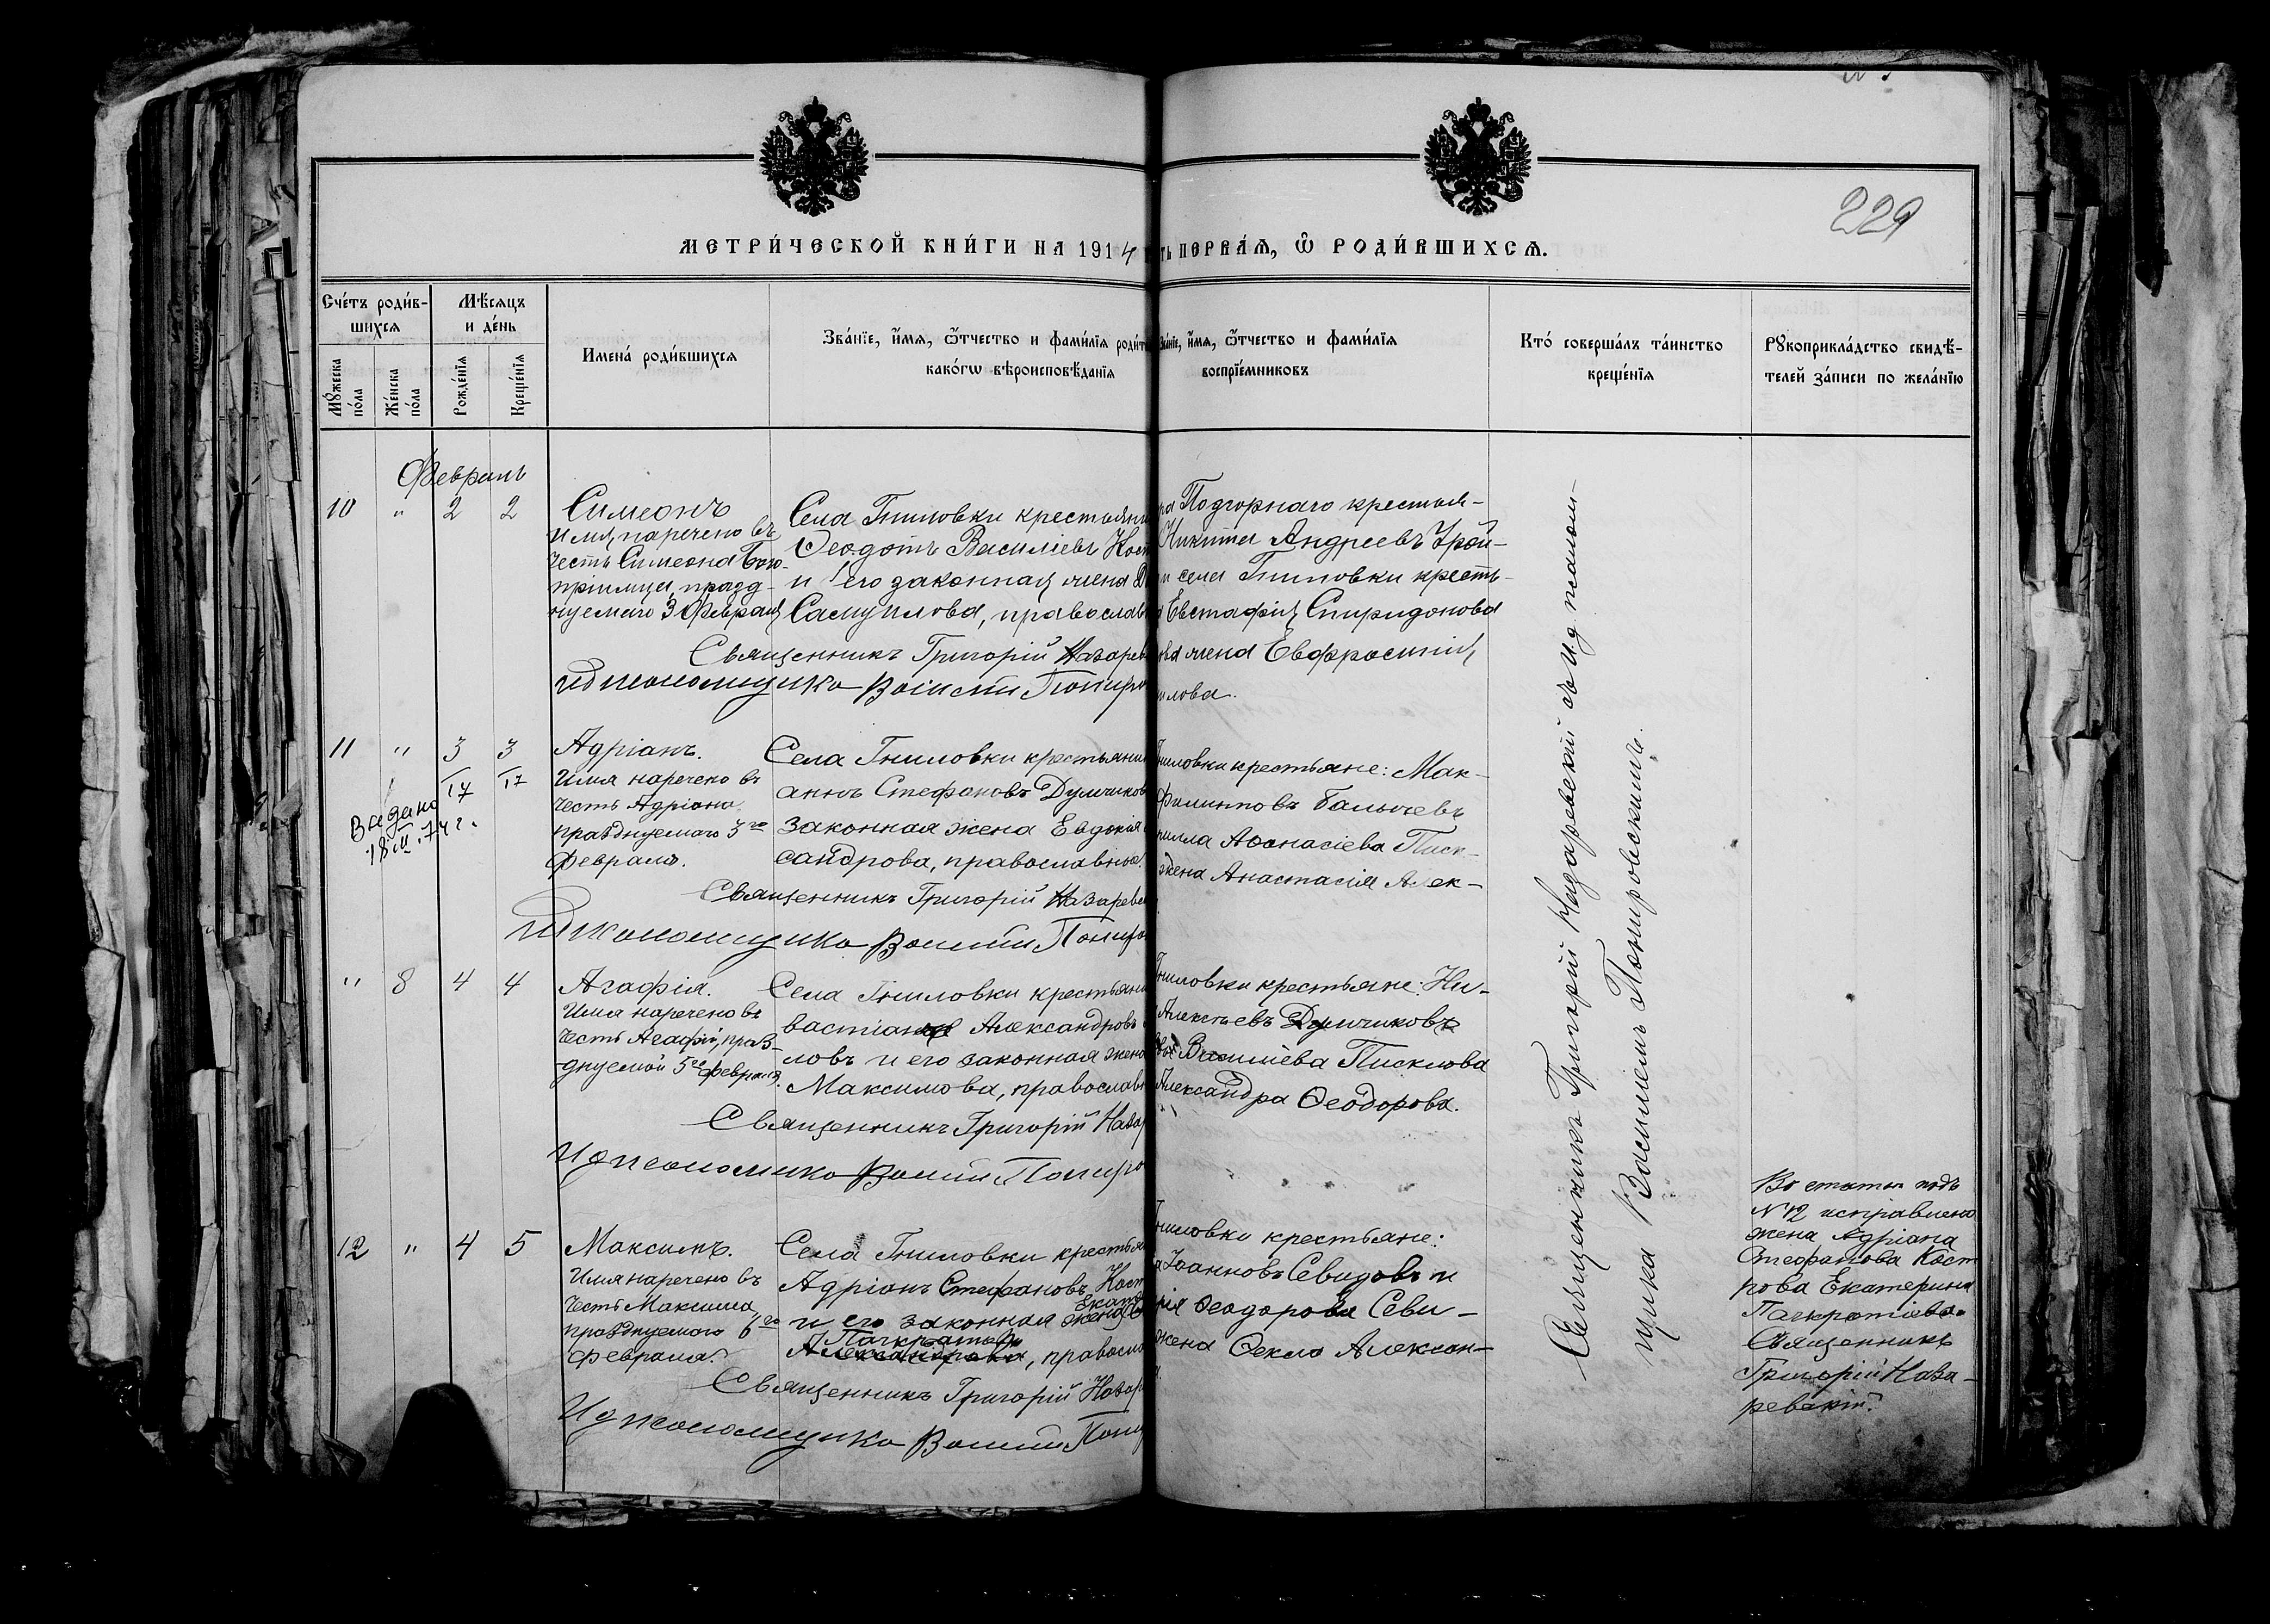 229
МЕТРИ́ЧЕСКОЙ КНИ́ГИ НА 1914
ть ПЕРВА́Я, Ѿ РОДИ́ВШИХСЯ.
Сче́тъ роди́в-
шихся
Му́жеска по́ла
Же́нска по́ла
Мѣ́сяцъ
и де́нь
Рожде́нїя
Креще́нїя
Имена́ роди́вшихся
Зва́нїе, и́мя, ѻ́тчество и фами́лїя роди́т
како́гѡ вѣроисповѣ́данїя
Зва́нїе, и́мя, ѻ́тчество и фами́лїя
воспрїе́мниковъ
Кто́ соверша́лъ та́инство
креще́нїя
Рꙋкоприкла́дство свидѣ́-
телей за́писи по жела́нїю
Февраль
10 " 2 2
Симеонъ
Имя наречено въ
честь Симеона Бого-
пріимца, празд-
нуемаго 3 Февраля
Села Гниловки крестьяни
Ѳеодотъ Василіевъ Кост
и его законная жена
Самуилова, православ
Священникъ Григорій Назарев
И д псаломщика Василій Понир
ра Подгорнаго крестья-
Никита Андреевъ Трой-
и села Гниловки кресть-
Евстафія Спиридонова
ова жена Евфросинія
илова.
11 " 3 3
17 17
Выдано
18 III.74 г.
Адріанъ.
Имя наречено въ
честь Адріана
празднуемаго 3го
Февраля.
Села Гниловки крестьянин
аннъ Стефановъ Думчиков
законная жена Евдокія
сандрова, православные.
Священникъ Григорій Назаревс
И д псаломщика Василій Понир
Гниловки крестьяне: Мак-
Филипповъ Балычевъ
рилла Аѳонасіева Писк-
жена Анастасія Алек-
" 8 4 4
Агафія.
Имя наречено въ
честь Агафіи, праз-
днуемой 5го Февраля.
Села Гниловки крестьяни
вастіанъ Александровъ
ловъ и его законная жена
Максимова, православн
Священникъ Григорій Назар
И д псаломщика Василій Пониро
Гниловки крестьяне: Ни-
Алексѣевъ Думчиковъ
Василіева Писклова
Александра Ѳеодорова.
12 " 4 5
Максимъ.
Имя наречено въ
честь Максима
празднуемаго 6го
Февраля.
Села Гниловки крестья
Адріанъ Стефановъ Кост
Екате
и его законная жена
Панкратьев
Александрова, правосла
Священникъ Григорій Назар
И д псаломщика Василій Пони
Гниловки крестьяне:
Іоанновъ Севидовъ и
рія Ѳеодорова Севи-
жена Ѳекла Алексан-
Священникъ Григорій Назаревскій съ и. д. псалом-
щика Василіемъ Понировскимъ.
Въ статьи подъ
№ 12 исправлено
жена Адріана
Стефанова Кост
рова Екатерина
Панкратіева.
Священникъ
Григорій Наза-
ревскій.